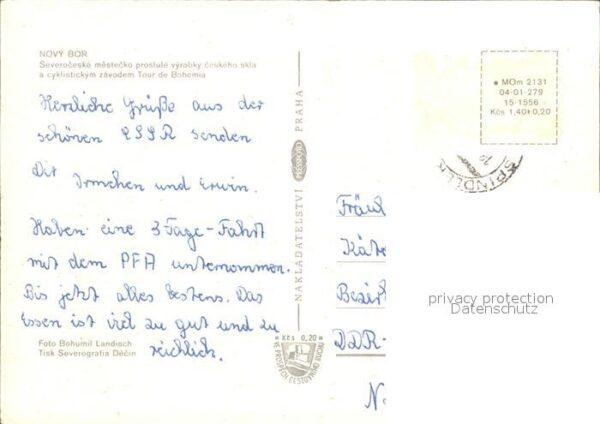 NOVÝ BOR
Severočeské městečko proslulé výrobky českého skla
a cyklistickým závodem Tour de Bohemia
Herzliche Grüße aus der
schönen ČSSR senden
Dir Irmchen und Erwin.
Haben eine 3 Tage-Fahrt
mit dem PFA unternommen.
Bis jetzt alles bestens. Das
Essen ist viel zu gut und zu
reichlich.
Foto Bohumil Landisch
Tisk Severografia Děčín
NAKLADATELSTVÍ PRESSFOTO PRAHA
Kčs 0,20
VE PROSPĚCH CESTOVNÍHO RUCHU
MOm 2131
04-01-279
15-1556
Kčs 1,40+0,20
ŠPINDLER
Fräul
Käte
Bezir
DDR-
N
privacy protection
Datenschutz